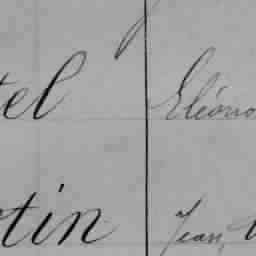 tel Eléono
tin Jean,